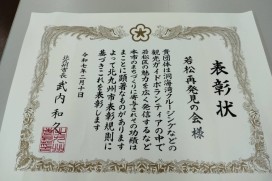 表彰状
若松再発見の会 様
貴団体は洞海湾クルージングなどの
観光ガイドボランティアの中で
若松区の魅力を広く発信するなど
本市のまちづくりに寄与されその功績は
まことに顕著なものがあります
よって北九州市表彰規則に
基づきこれを表彰します
令和七年二月十日
北九州市長 武内和久